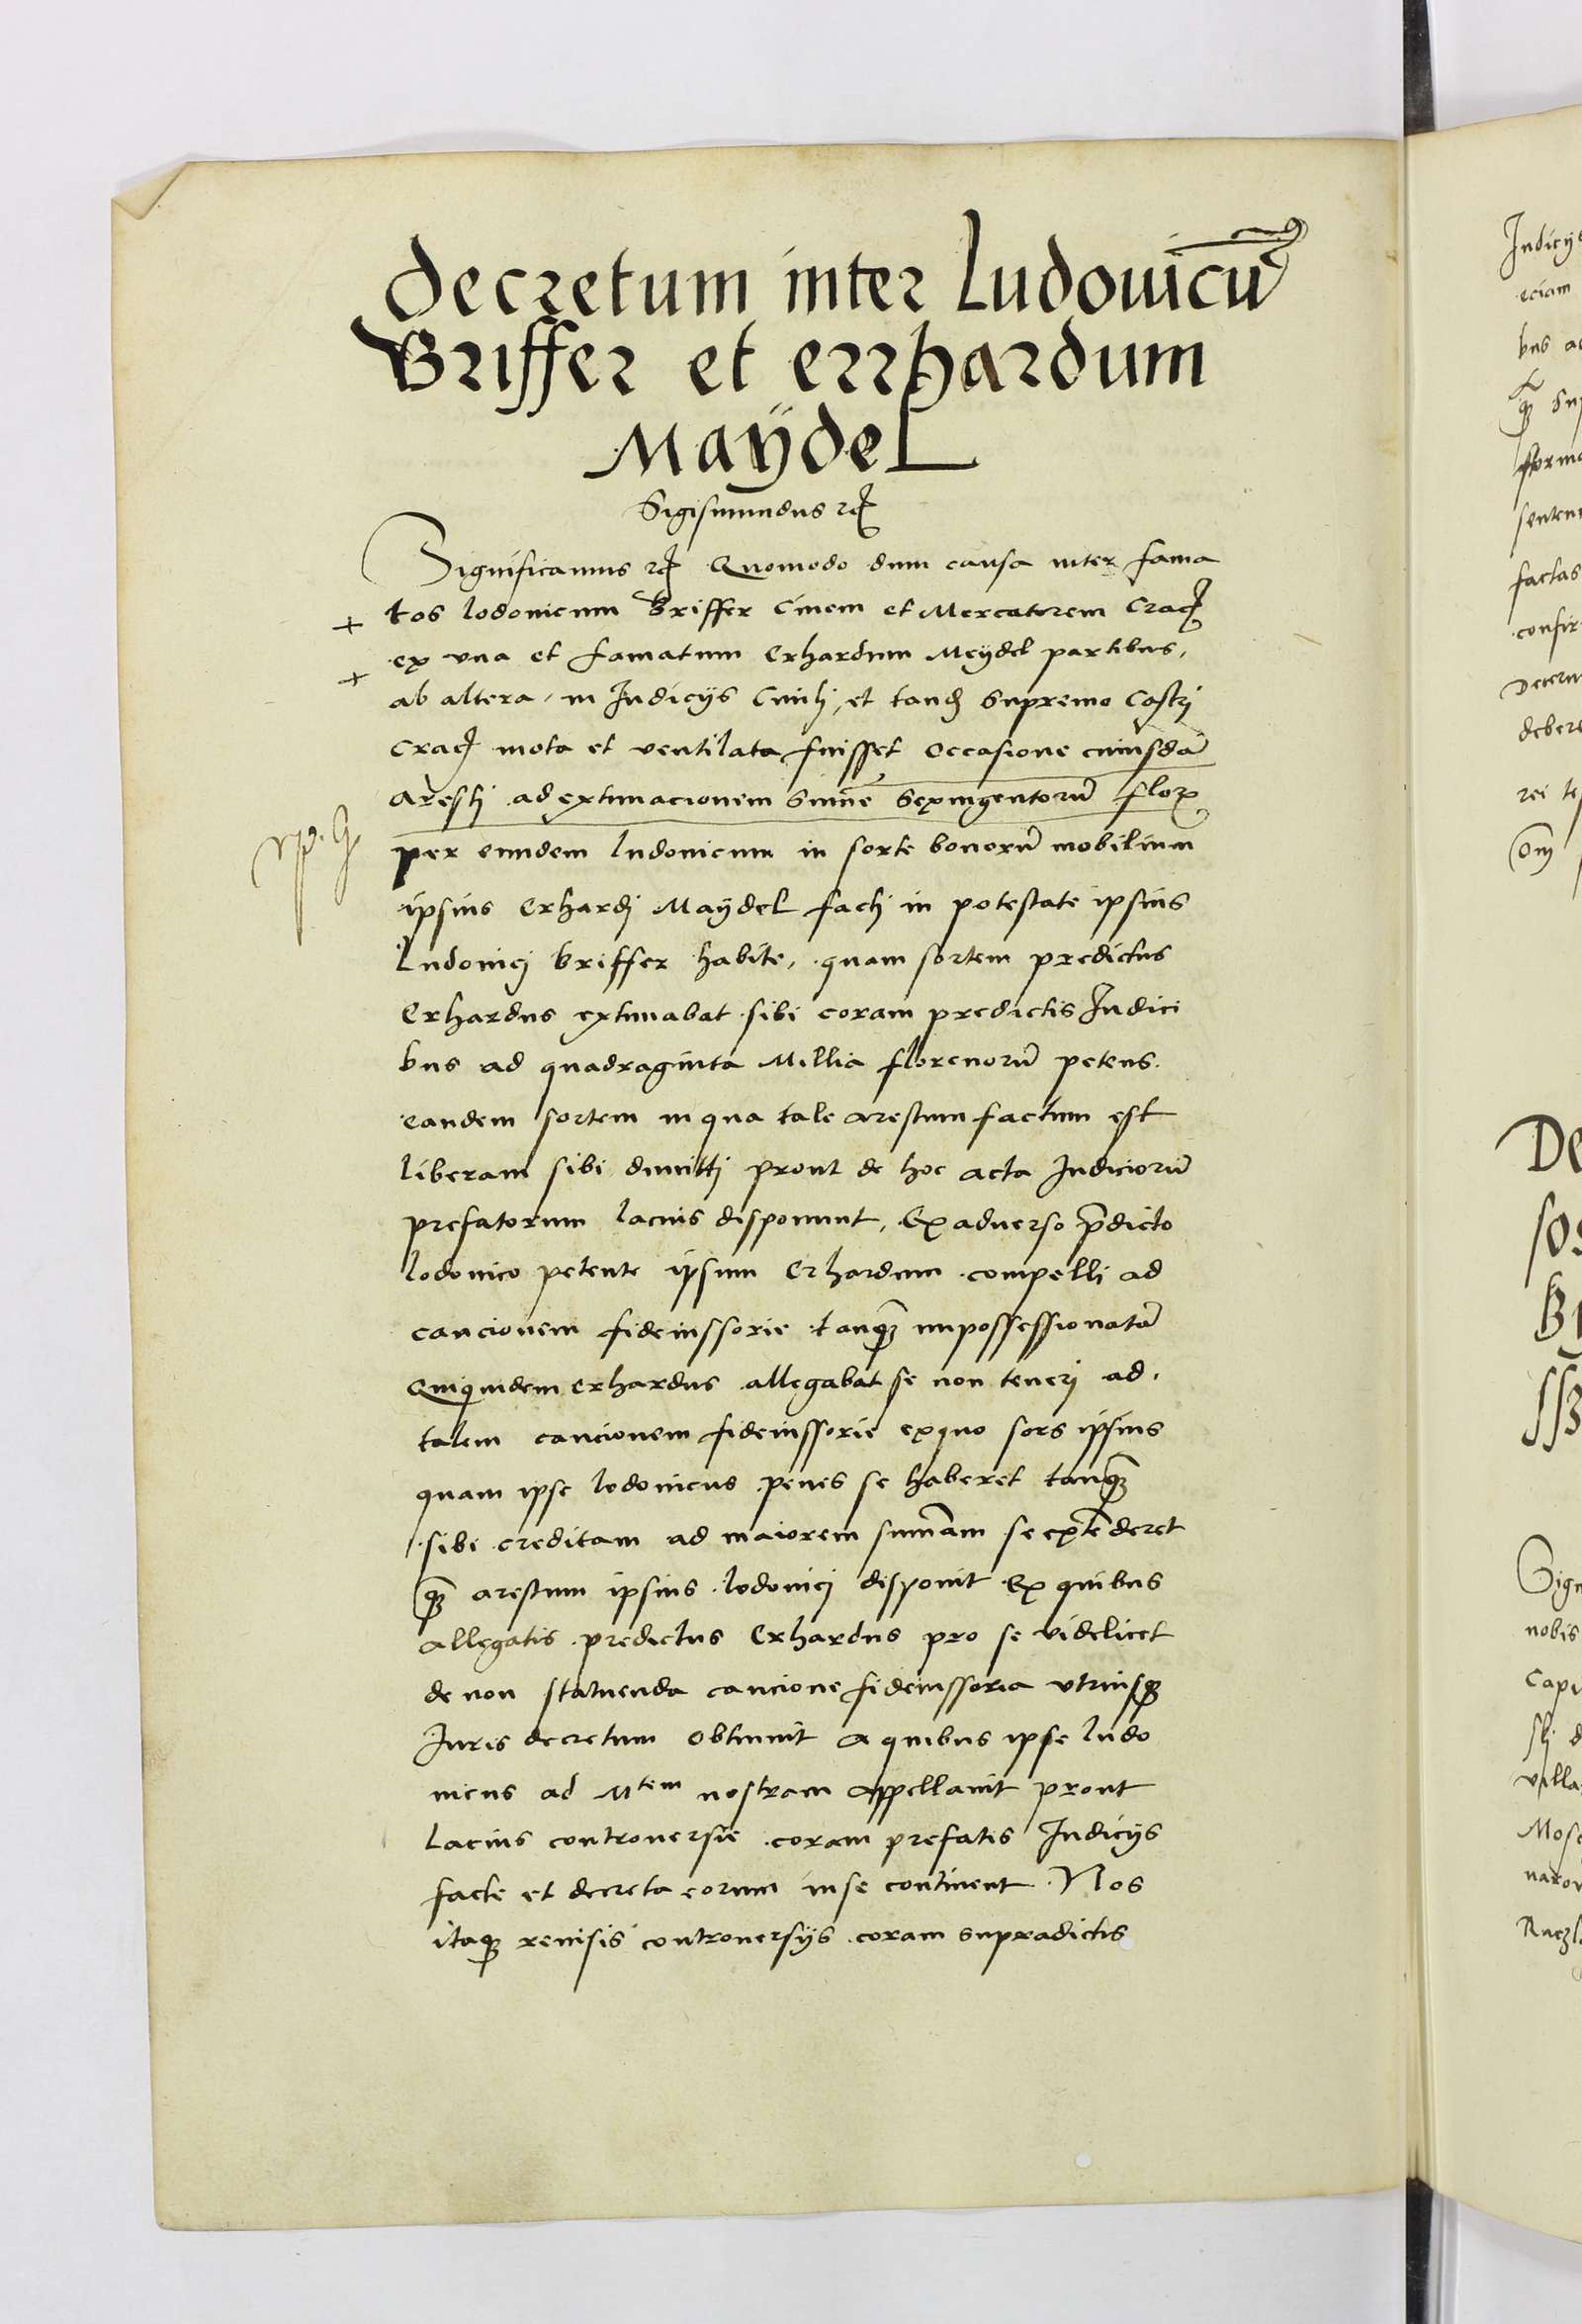 Decretum inter Ludouicũ
Briffer et errhardum
Maÿdel
Sigismundus rc̃
Significamus rc̃ Quomodo dum causa inter fama
tos lodouicum Briffer Ciuem et Mercatorem Crac̃
ex vna et famatum Erhardum Meÿdel partibus,
ab altera, in Judicÿs Ciuili, et tandẽ Supremo Castri
Crac̃ mota et ventilata fuisset Occasione cuiusdã
Aresti ad extimacionem Summe Sexingentorũ flor
per eundem ludouicum in sorte bonorũ mobilium
ipsius Erhardi Maÿdel facti in potestate ipsius
Ludouici briffer habite, quam sortem predictus
Erhardus extimabat sibi coram predictis Judici
bus ad quadraginta Millia florenorũ petens
eandem sortem in qua tale arestum factum est
liberam sibi dimitti prout de hoc acta Judiciorũ
prefatorum lacius disponunt, Ex aduerso p̃dicto
lodouico petente ipsum Erhardum compelli ad
caucionem fideiussorie tanq̃ impossessionatũ
Quiquidem Erhardus allegabat se non teneri ad
talem caucionem fideiussorie exquo sors ipsius
quam ipse lodouicus penes se haberet tanq̃
sibi creditam ad maiorem sum̃am se extẽderet
q̃ arestum ipsius lodouici disponit Ex quibus
allegatis predictus Erhardus pro se videlicet
de non statuenda caucione fideiussoria vtriusq
Juris decretum obtinuit a quibus ipse ludo
uicus ad Mtem nostram appellauit prout
lacius controuersie coram prefatis Judicÿs
facte et decreta eorum in se continent. Nos
itaq reuisis controuersÿs coram supradictis
Judicÿ
eciam
bus
forma
senten
factas
confir
Decern
debere
rei
De
Sign
nobis
Capi
villa
Mosc